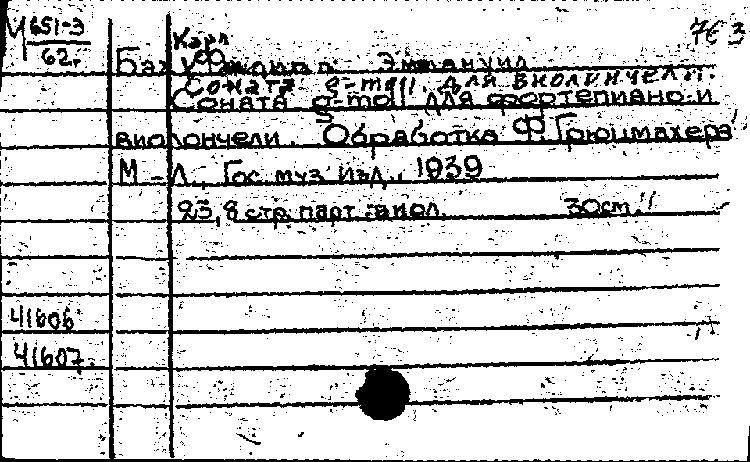 М 651-3
62г.
763
Карл
Бах Ф Эммануил
Соната g-moll для виолончели.
Соната g-moll для фортепиано и
виолончели. Обработка Ф. Грюцмахера
М-Л., Гос. муз. изд., 1939
23, 8 стр. парт. виол. 30 cm.
41606
41607.